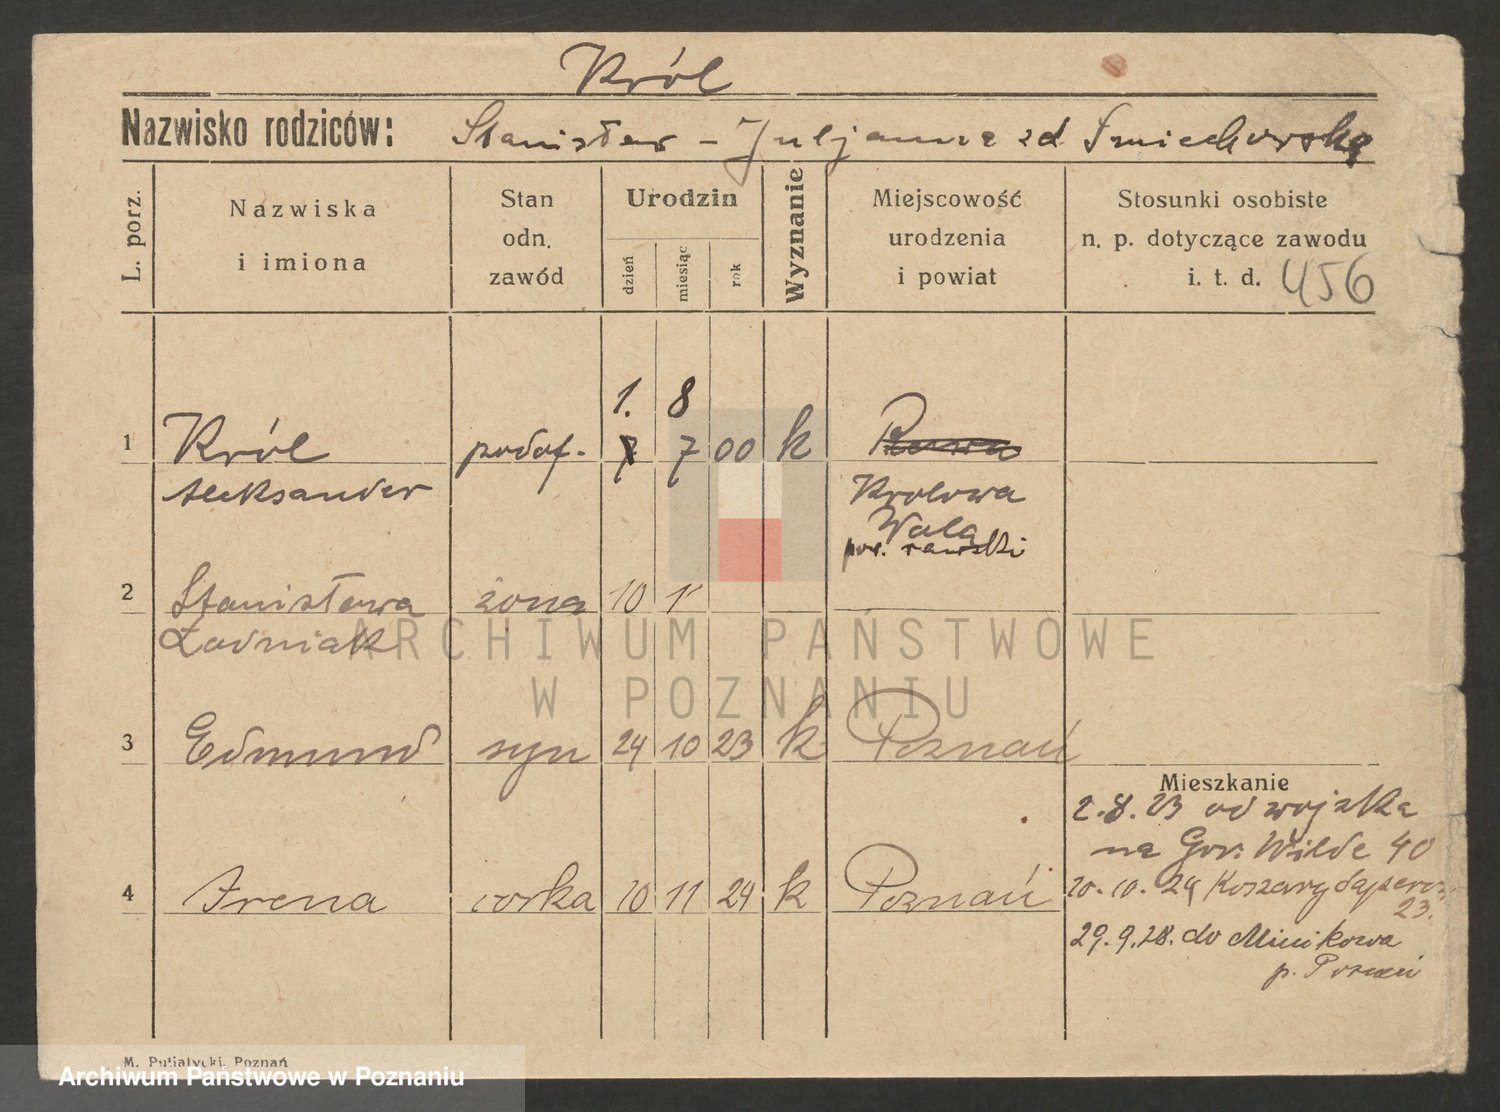 Król
Nazwisko rodziców: Stanisław - Juljanna zd Śmiechowska
L. porz.
Nazwiska
i imiona
Stan
odn.
zawód
Urodzin
dzień
miesiąc
rok
Wyznanie
Miejscowość
urodzenia
i powiat
Stosunki osobiste
n. p. dotyczące zawodu
i. t. d. 456
1. 8
1 Król podof. 7 00 k Rawa
Aleksander Krolowa
Wola
pow. rawski
2 Stanisława żona 10 11
Ładniak
ARCHIWUM PAŃSTWOWE
W POZNANIU
3 Edmund syn 24 10 23 k Poznań
Mieszkanie
2.8.23 od wojska
na Gór. Wilde 40
4 Irena corka 10 11 24 k Poznań
20.10.24 Koszary
23.
29.9.28. do Minikowa
p. Poznań
M. Putiatycki, Poznań
Archiwum Państwowe w Poznaniu